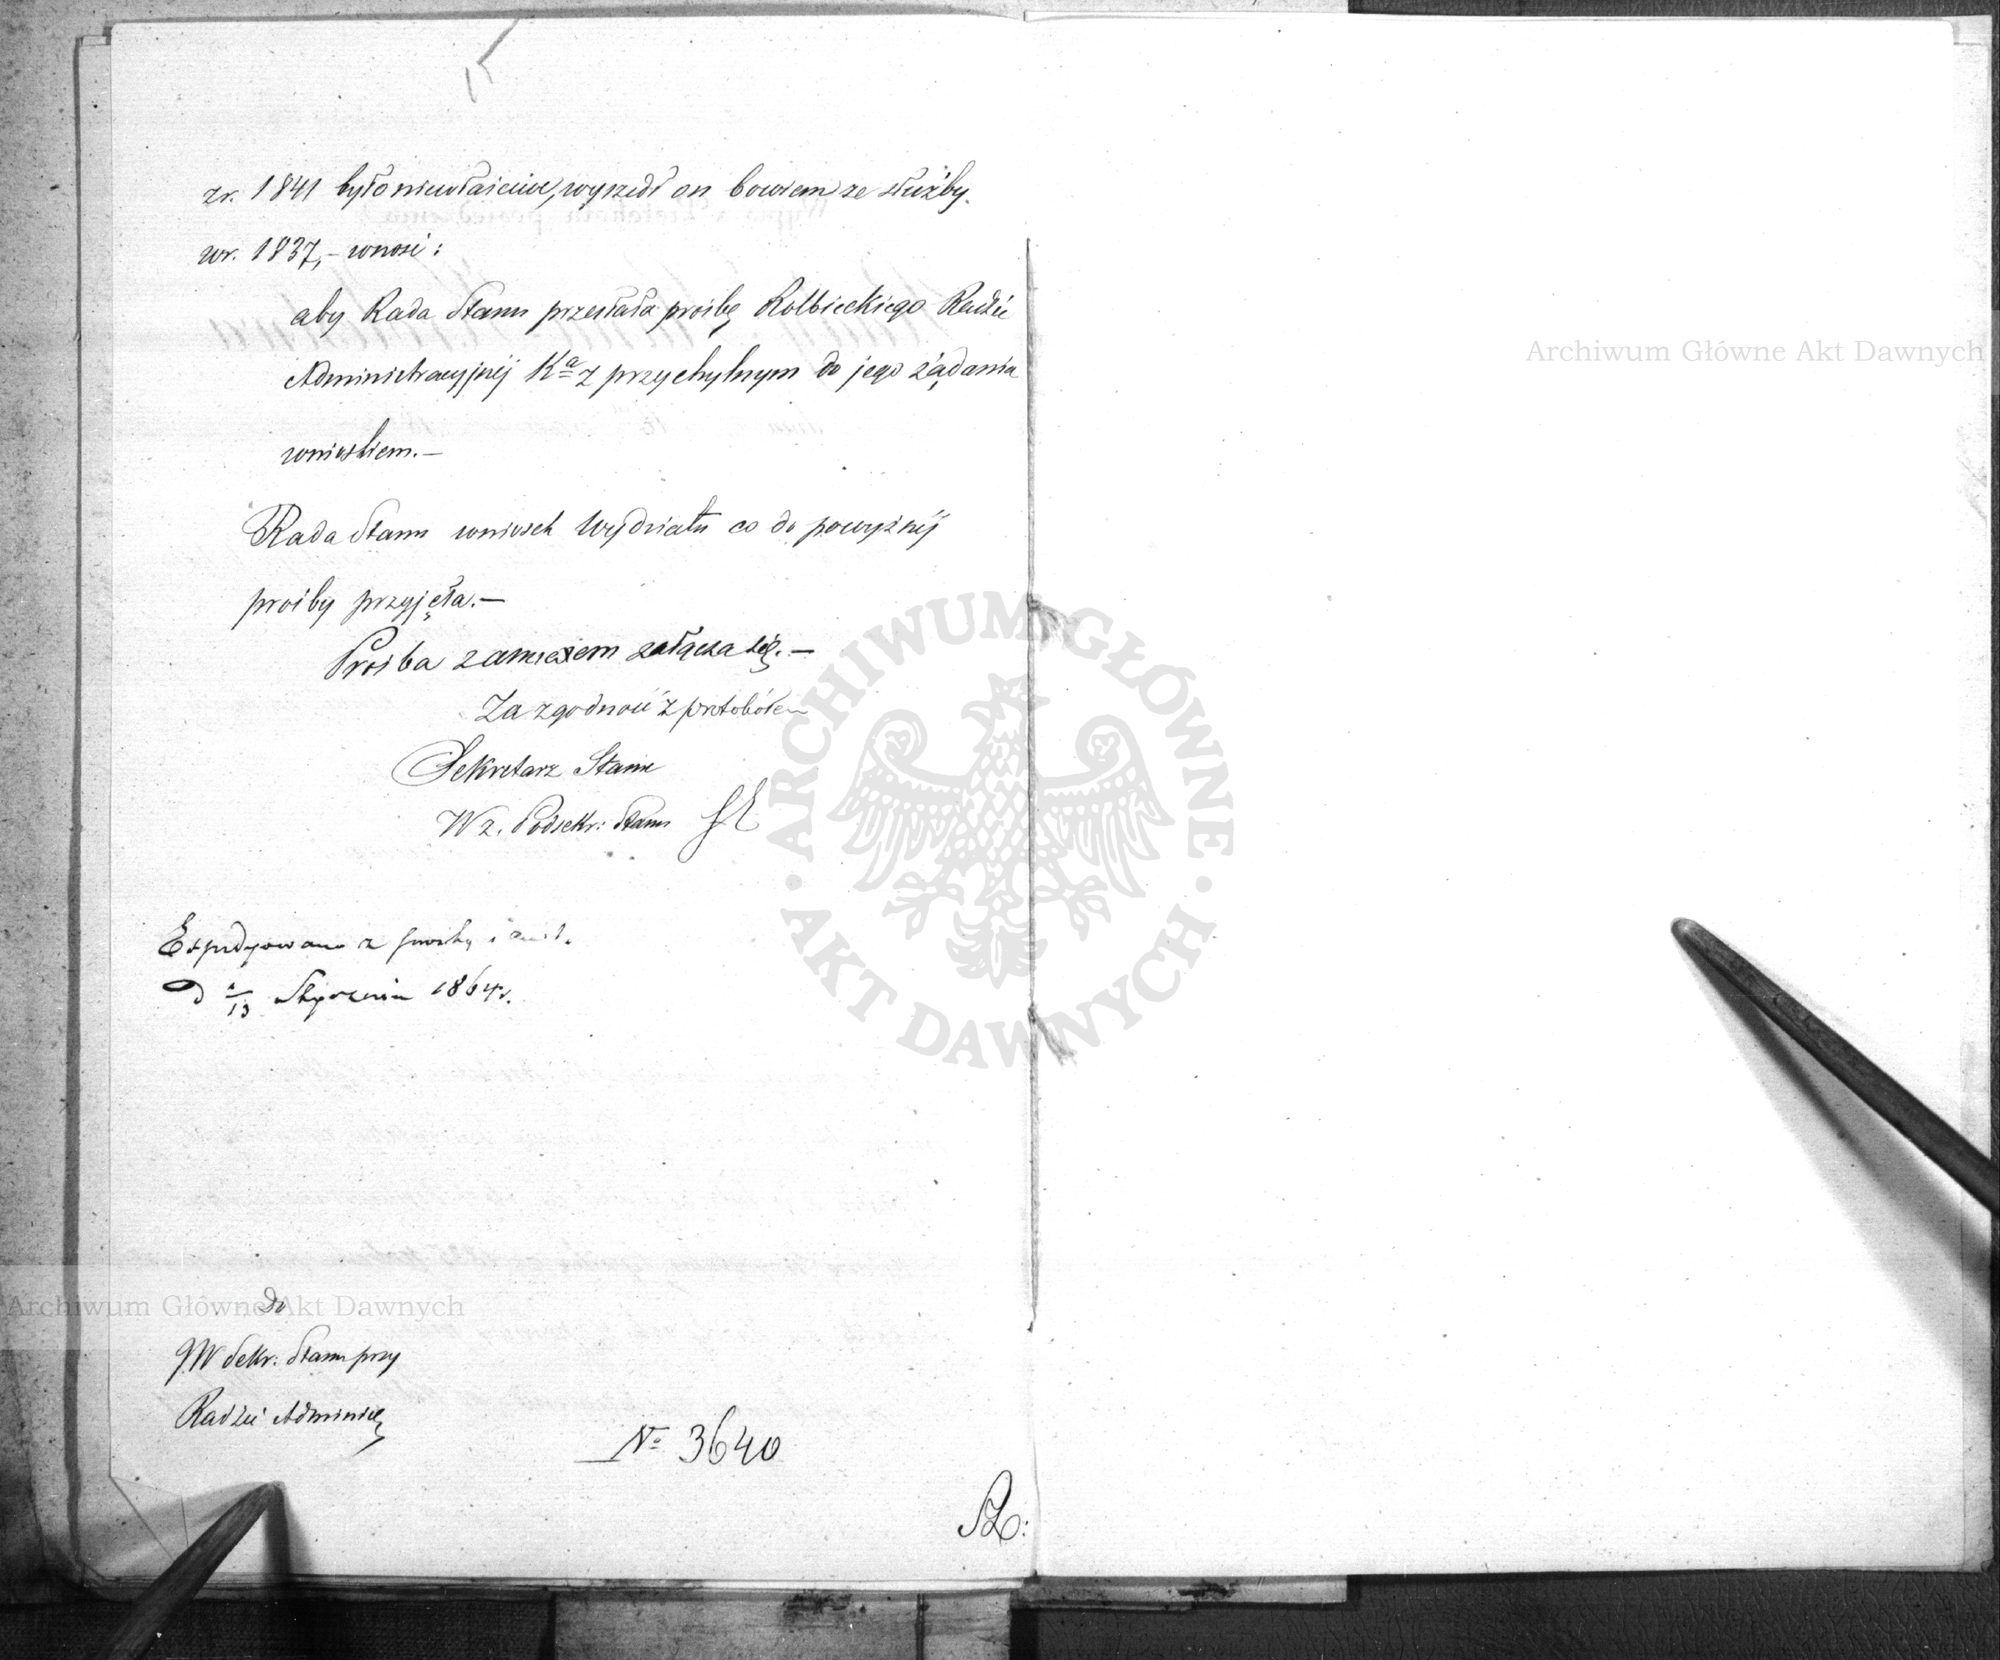 z r. 1841 było niewłaściwe, wyszedł on bowiem ze służby
w r. 1837, – wnosi:
aby Rada Stanu przesłała prośbę Kolbieckiego Radzie
Administracyjnéj Kа z przychylnym do jego żądania
wnioskiem. –
Rada Stanu wniosek Wydziału co do powyżnéj
prośby przyjęła. –
Prośba zamiarem załącza się. –
Za zgodność z protokółem
Sekretarz Stanu
W z. Podsekr: Stanu
Expedyowano z prośbą
D 1/13 Stycznia 1864 r.
Do
JW Sekr: Stanu przy
Radzie Adminis
No 3640
Archiwum Główne Akt Dawnych
Archiwum Główne Akt Dawnych
ARCHIWUM GŁÓWNE AKT DAWNYCH